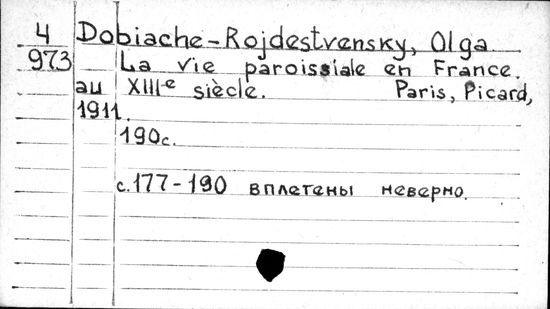 4 Dobiache-Rojdestvensky, Olga
973 La vie paroissiale en France.
au XIIIe siècle. Paris, Picard,
1911.
190с.
с.177-190 вплетены неверно.